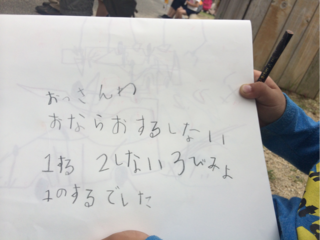 おっさんわ
おならおするしない
1する 2しない 3びみょ
1のするでした